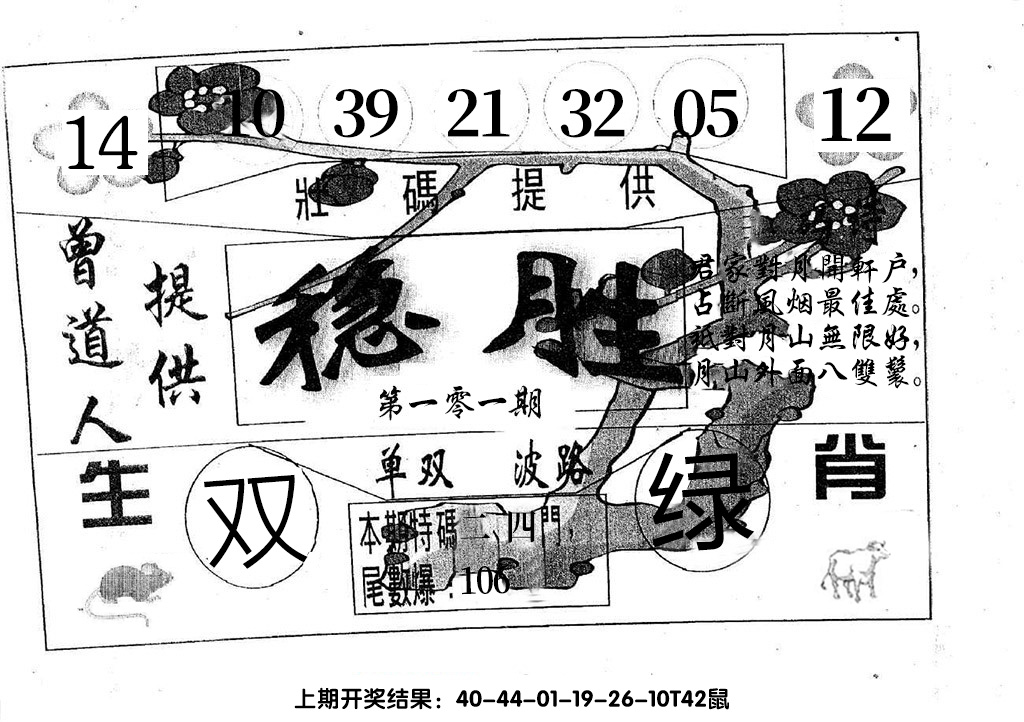 14 10 39 21 32 05 12
壯 碼 提 供
曾道人
提供
特
君家對月開軒户，
占斷風烟最佳處。
祗對月山無限好，
月山外面八雙鬟。
稳胜
第一零一期
单双 波路
生肖
双
绿
本期特碼二、四門，
尾數爆：106
上期开奖结果：40-44-01-19-26-10T42鼠